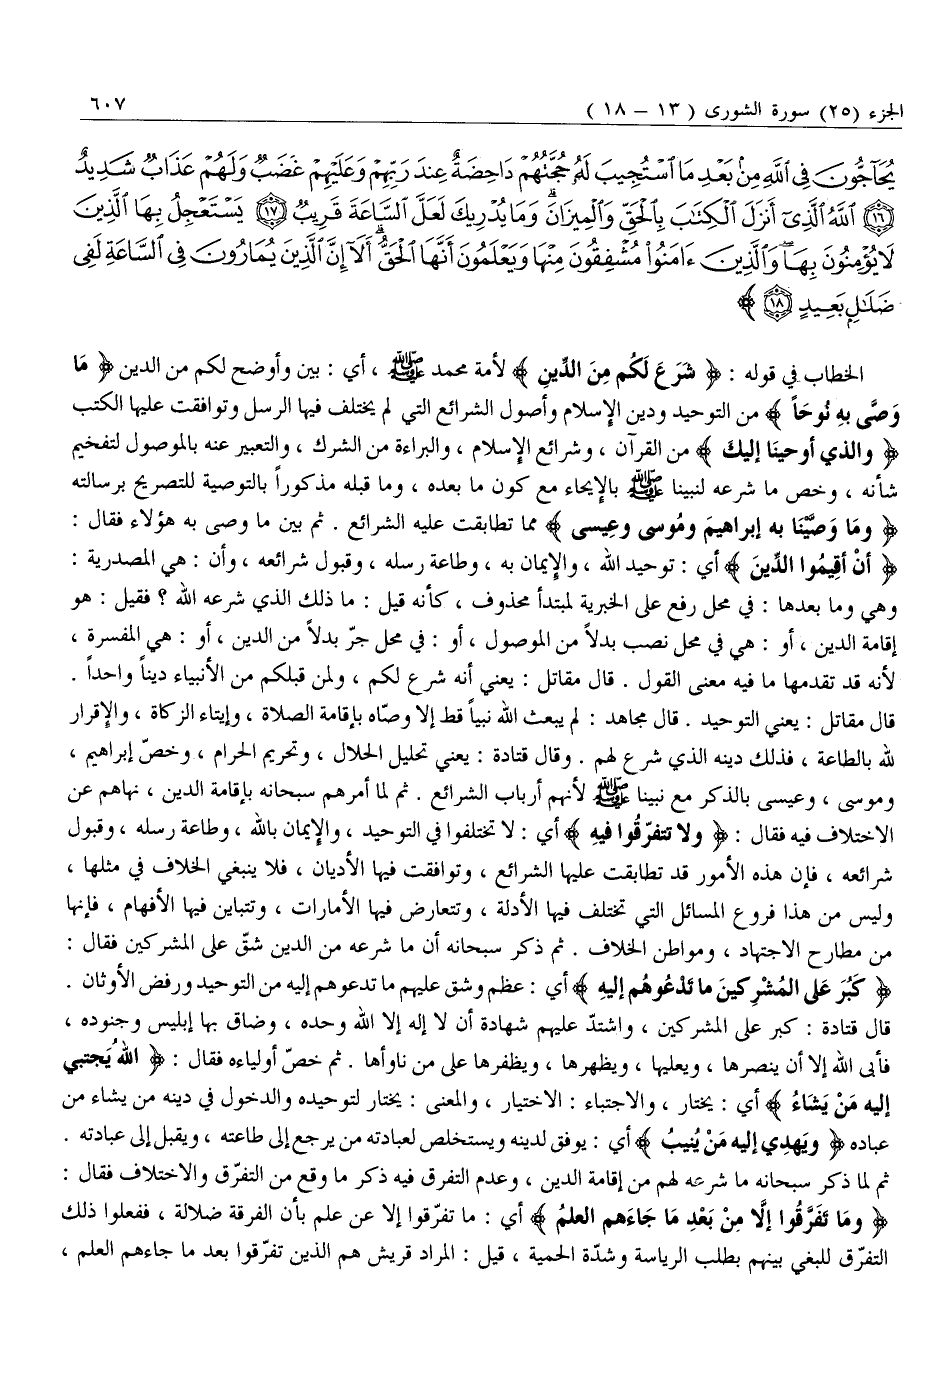 الجزء (٢٥) سورة الشورى ( ١٣ – ١٨ ) ٦٠٧
يُحَآجُّونَ فِى ٱللَّهِ مِنۢ بَعْدِ مَا ٱسْتُجِيبَ لَهُۥ حُجَّتُهُمْ دَاحِضَةٌ عِندَ رَبِّهِمْ وَعَلَيْهِمْ غَضَبٌ وَلَهُمْ عَذَابٌ شَدِيدٌ
﴿١٦﴾ ٱللَّهُ ٱلَّذِىٓ أَنزَلَ ٱلْكِتَٰبَ بِٱلْحَقِّ وَٱلْمِيزَانَ ۗ وَمَا يُدْرِيكَ لَعَلَّ ٱلسَّاعَةَ قَرِيبٌ ﴿١٧﴾ يَسْتَعْجِلُ بِهَا ٱلَّذِينَ
لَا يُؤْمِنُونَ بِهَا ۖ وَٱلَّذِينَ ءَامَنُوا۟ مُشْفِقُونَ مِنْهَا وَيَعْلَمُونَ أَنَّهَا ٱلْحَقُّ ۗ أَلَآ إِنَّ ٱلَّذِينَ يُمَارُونَ فِى ٱلسَّاعَةِ لَفِى
ضَلَٰلٍۭ بَعِيدٍ ﴿١٨﴾ ﴾
الخطاب في قوله : ﴿ شَرَعَ لَكُم مِنَ الدِّينِ ﴾ لأمة محمد ﷺ ، أي : بين وأوضح لكم من الدين ﴿ مَا
وَصَّى بِهِ نُوحَاً ﴾ من التوحيد ودين الإسلام وأصول الشرائع التي لم يختلف فيها الرسل وتوافقت عليها الكتب
﴿ والذي أوحينَا إليكَ ﴾ من القرآن ، وشرائع الإسلام ، والبراءة من الشرك ، والتعبير عنه بالموصول لتفخيم
شأنه ، وخص ما شرعه لنبينا ﷺ بالإيحاء مع كون ما بعده ، وما قبله مذكوراً بالتوصية للتصريح برسالته
﴿ ومَا وَصَّيْنَا به إبراهيمَ ومُوسى وعِيسى ﴾ مما تطابقت عليه الشرائع . ثم بين ما وصى به هؤلاء فقال :
﴿ أنْ أقِيمُوا الدِّينَ ﴾ أي : توحيد الله ، والإيمان به ، وطاعة رسله ، وقبول شرائعه ، وأن : هي المصدرية :
وهي وما بعدها : في محل رفع على الخبرية لمبتدأ محذوف ، كأنه قيل : ما ذلك الذي شرعه الله ؟ فقيل : هو
إقامة الدين ، أو : هي في محل نصب بدلاً من الموصول ، أو : في محل جرّ بدلاً من الدين ، أو : هي المفسرة ،
لأنه قد تقدمها ما فيه معنى القول . قال مقاتل : يعني أنه شرع لكم ، ولمن قبلكم من الأنبياء ديناً واحداً .
قال مقاتل : يعني التوحيد . قال مجاهد : لم يبعث الله نبياً قط إلا وصّاه بإقامة الصلاة ، وإيتاء الزكاة ، والإقرار
لله بالطاعة ، فذلك دينه الذي شرع لهم . وقال قتادة : يعني تحليل الحلال ، وتحريم الحرام ، وخصّ إبراهيم ،
وموسى ، وعيسى بالذكر مع نبينا ﷺ لأنهم أرباب الشرائع . ثم لما أمرهم سبحانه بإقامة الدين ، نهاهم عن
الاختلاف فيه فقال : ﴿ ولا تتفرّقُوا فيهِ ﴾ أي : لا تختلفوا في التوحيد ، والإيمان بالله ، وطاعة رسله ، وقبول
شرائعه ، فإن هذه الأمور قد تطابقت عليها الشرائع ، وتوافقت فيها الأديان ، فلا ينبغي الخلاف في مثلها ،
وليس من هذا فروع المسائل التي تختلف فيها الأدلة ، وتتعارض فيها الأمارات ، وتتباين فيها الأفهام ، فإنها
من مطارح الاجتهاد ، ومواطن الخلاف . ثم ذكر سبحانه أن ما شرعه من الدين شقّ على المشركين فقال :
﴿ كَبُرَ عَلى المُشْرِكينَ ما تَدْعُوهُم إليهِ ﴾ أي : عظم وشق عليهم ما تدعوهم إليه من التوحيد ورفض الأوثان .
قال قتادة : كبر على المشركين ، واشتدّ عليهم شهادة أن لا إله إلا الله وحده ، وضاق بها إبليس وجنوده ،
فأبى الله إلا أن ينصرها ، ويعليها ، ويظهرها ، ويظفرها على من ناوأها . ثم خصّ أولياءه فقال : ﴿ اللهُ يَجتبي
إليه مَنْ يَشَاءُ ﴾ أي : يختار ، والاجتباء : الاختيار ، والمعنى : يختار لتوحيده والدخول في دينه من يشاء من
عباده ﴿ ويَهدِي إليه مَنْ يُنيبُ ﴾ أي : يوفق لدينه ويستخلص لعبادته من يرجع إلى طاعته ، ويقبل إلى عبادته .
ثم لما ذكر سبحانه ما شرعه لهم من إقامة الدين ، وعدم التفرق فيه ذكر ما وقع من التفرّق والاختلاف فقال :
﴿ ومَا تَفَرَّقُوا إلَّا مِنْ بَعْدِ مَا جَاءَهم العلمُ ﴾ أي : ما تفرّقوا إلا عن علم بأن الفرقة ضلالة ، ففعلوا ذلك
التفرّق للبغي بينهم بطلب الرياسة وشدّة الحمية ، قيل : المراد قريش هم الذين تفرّقوا بعد ما جاءهم العلم ،